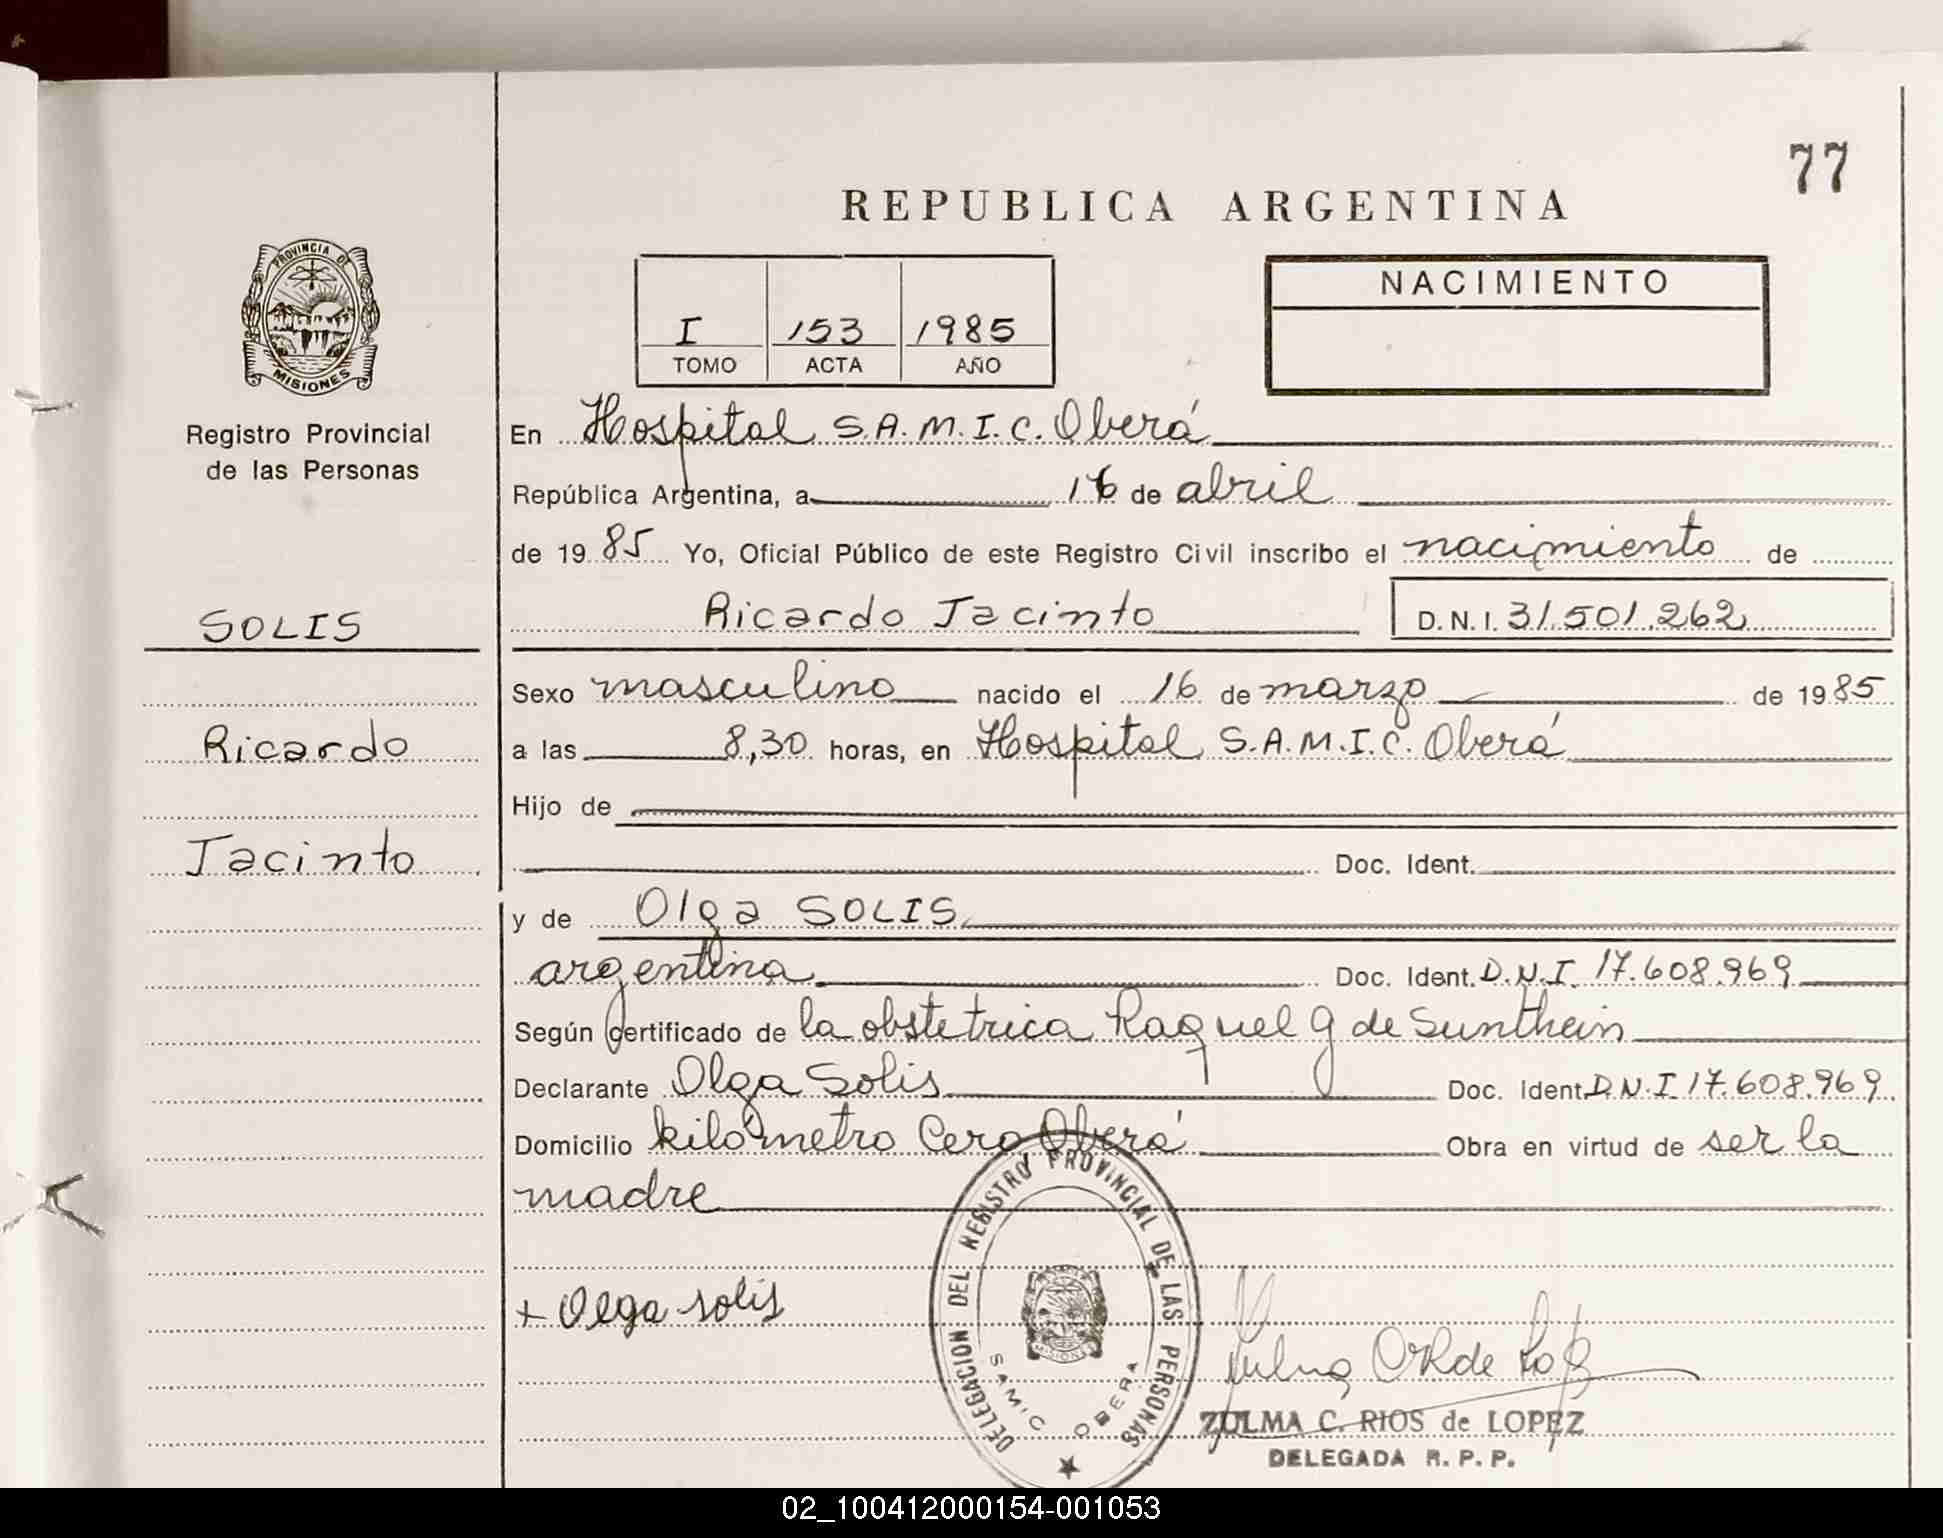 77
REPUBLICA ARGENTINA
PROVINCIA DE
MISIONES
Registro Provincial
de las Personas
I 153 1985
TOMO ACTA AÑO
NACIMIENTO
En Hospital S.A.M.I.C. Oberá
República Argentina, a 16 de abril
de 1985 Yo, Oficial Público de este Registro Civil inscribo el nacimiento de
SOLIS
Ricardo Jacinto D.N.I. 31.501.262
Sexo masculino nacido el 16 de marzo de 1985
Ricardo
a las 8,30 horas, en Hospital S.A.M.I.C. Oberá
Hijo de
Jacinto
Doc. Ident.
y de Olga SOLIS
argentina Doc. Ident. D.N.I. 17.608.969
Según certificado de la obstetrica Raquel G de Sunthein
Declarante Olga Solis Doc. Ident. D.N.I 17.608.969
Domicilio kilómetro Cero Oberá Obra en virtud de ser la
madre
DELEGACION DEL REGISTRO PROVINCIAL DE LAS PERSONAS
MISIONES
SAMIC OBERA
+ Olga solis
ZULMA C. RIOS de LOPEZ
DELEGADA R. P. P.
02_100412000154-001053